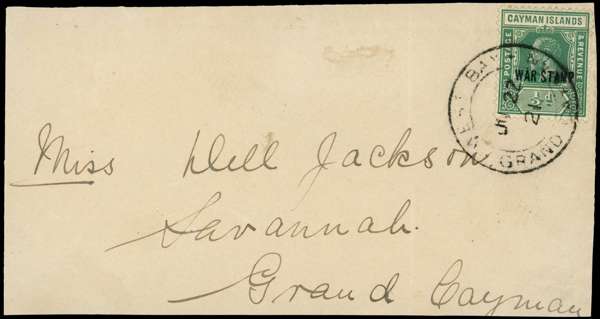 CAYMAN ISLANDS
POSTAGE & REVENUE
WAR STAMP
½d
WEST BAY
22
21
GRAND
Miss Dell Jackson
Savannah.
Grand Cayman